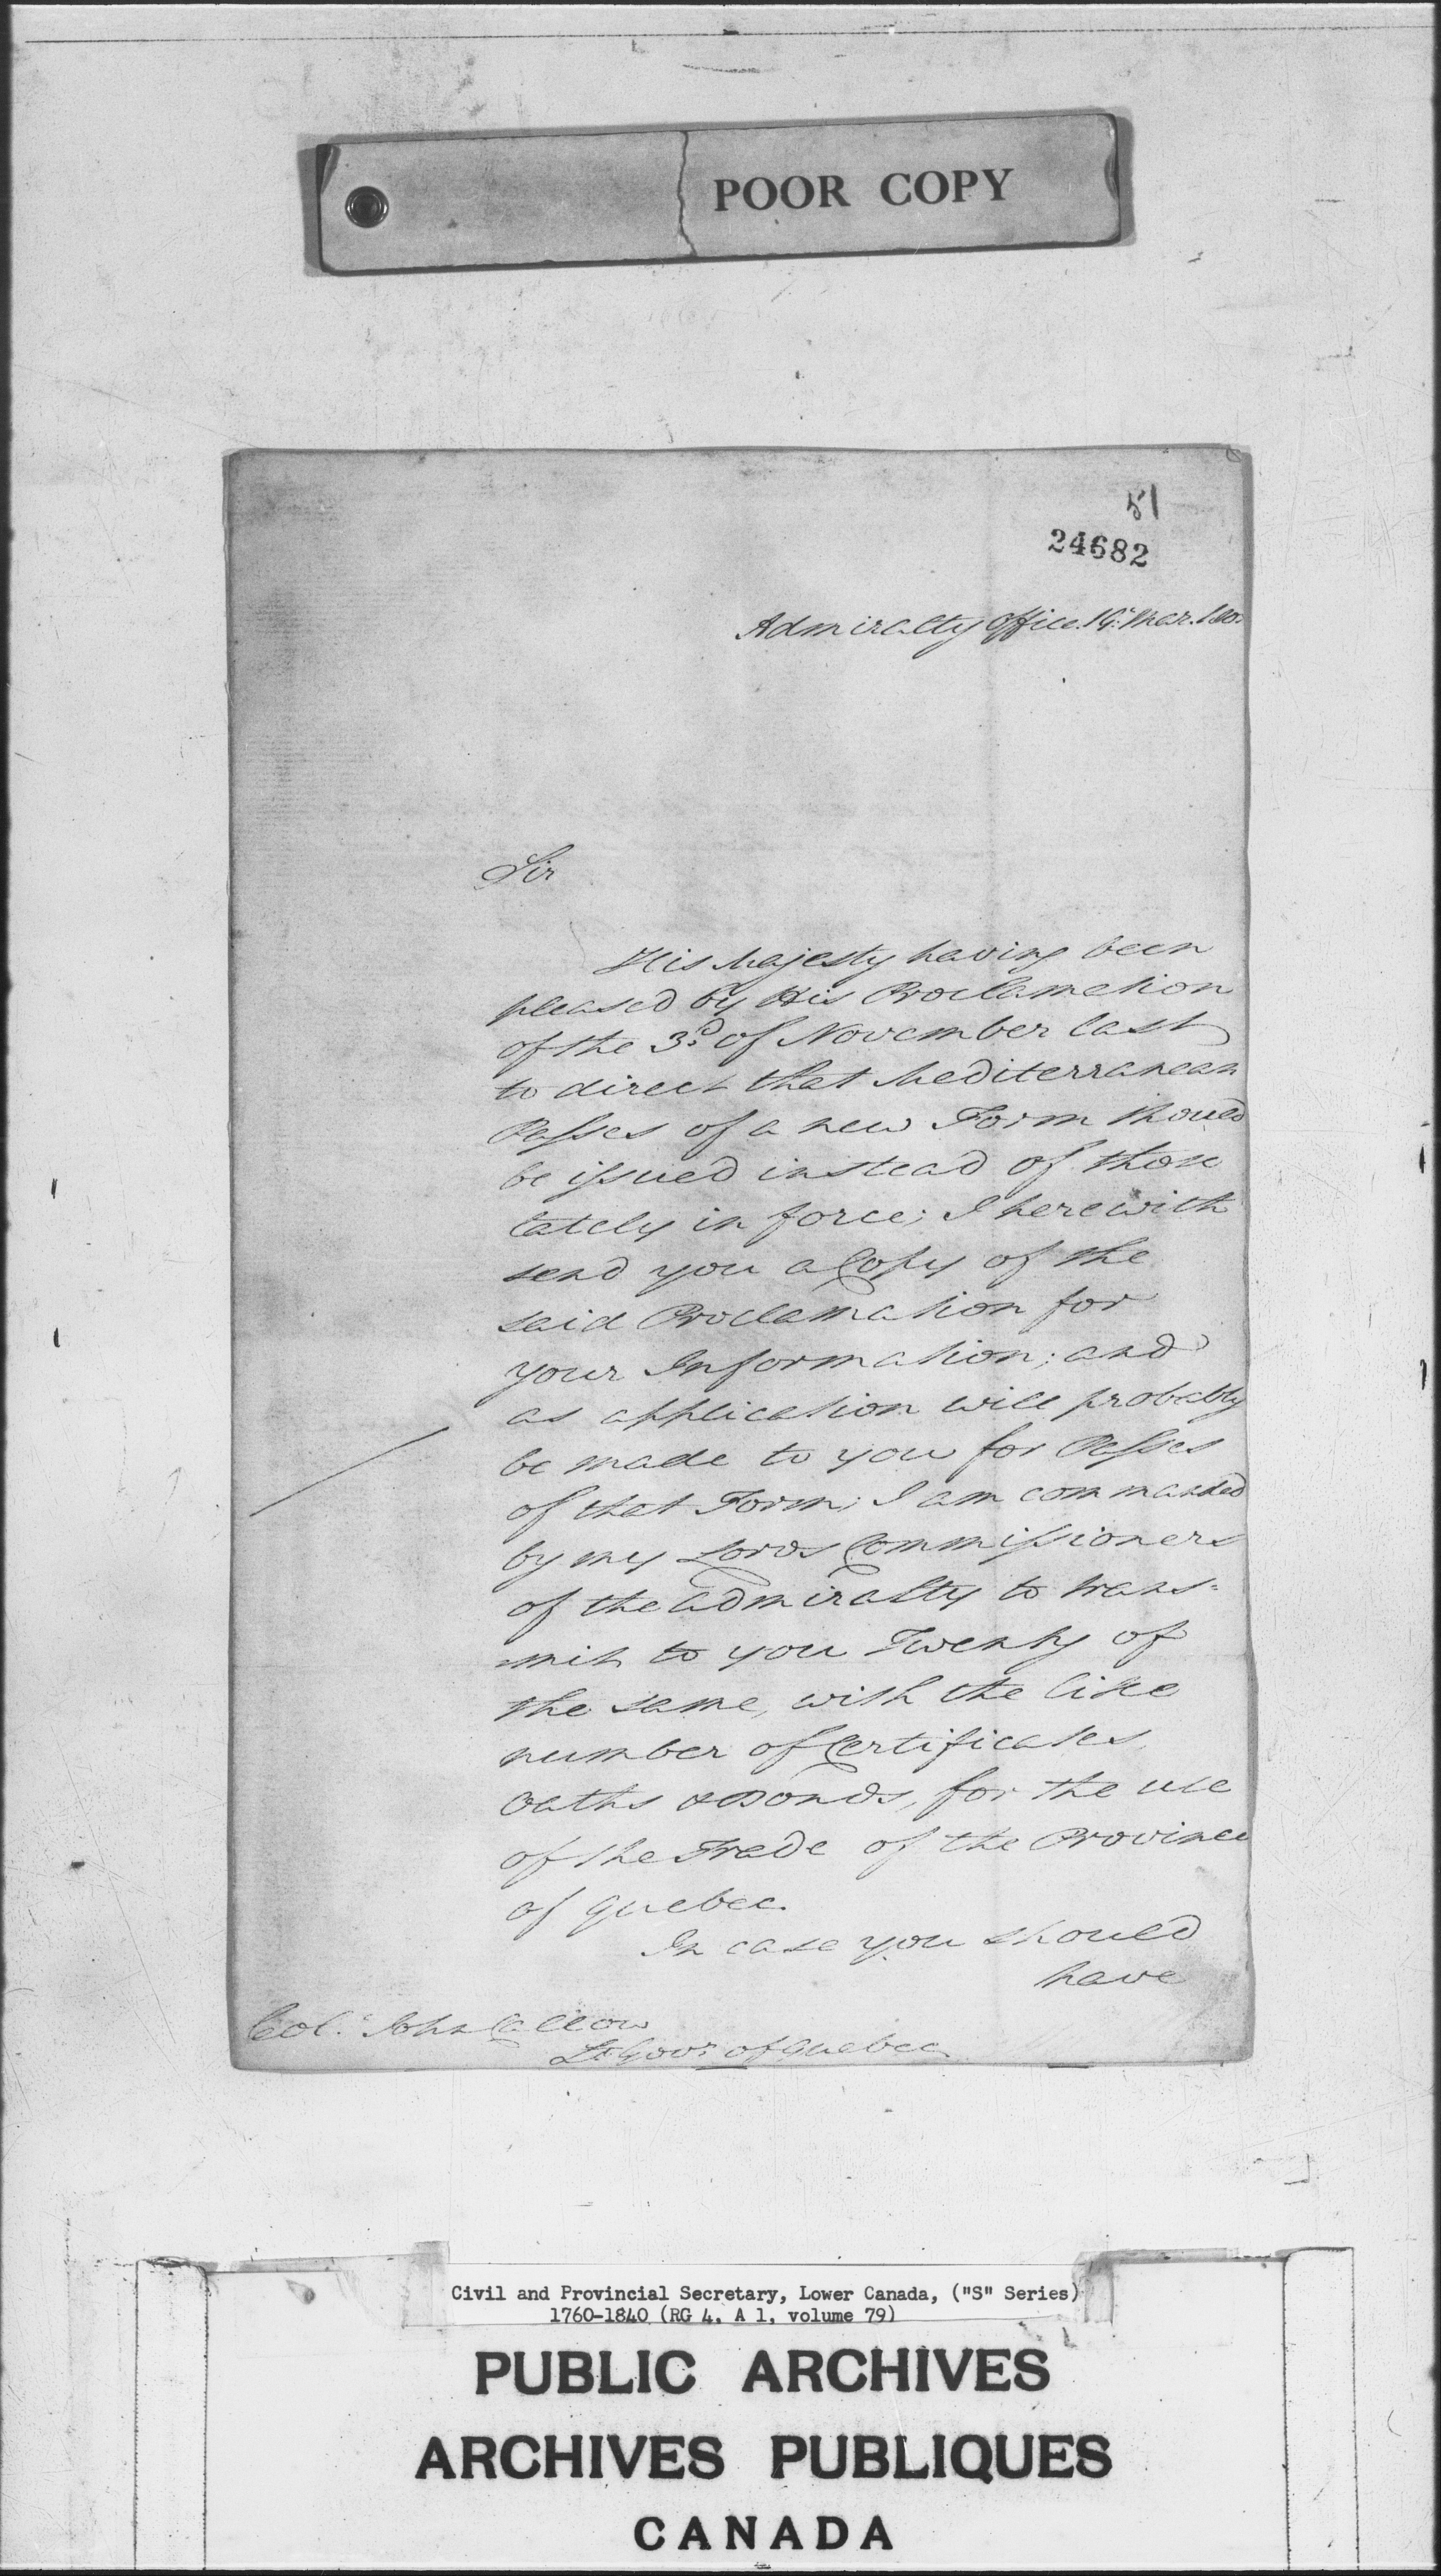 POOR COPY
51
24682
Admiralty Office. 19. Mar. 180
Sir
His Majesty having been
pleased by His Proclamation
of the 3d. of November last
to direct that Mediterranean
Passes of a new Form should
be issued instead of those
lately in force; I herewith
send you a Copy of the
said Proclamation for
your Information; and
as application will probably
be made to you for Passes
of that Form; I am commanded
by my Lords Commissioners
of the Admiralty to trans=
=mit to you Twenty of
the same, with the like
number of Certificates,
Oaths & Bonds, for the use
of the Trade of the Province
of Quebec.
In case you should
have
Col. John Callow
Lt. Govr. of Quebec
Civil and Provincial Secretary, Lower Canada, ("S" Series)
1760-1840 (RG 4, A 1, volume 79)
PUBLIC ARCHIVES
ARCHIVES PUBLIQUES
CANADA